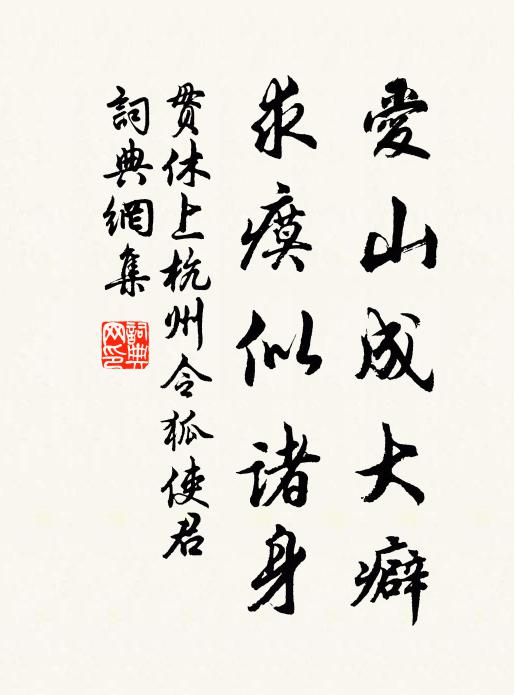 愛山成大癖
求瘼似諸身
貫休上杭州令狐使君
詞典網集
詞典
网印